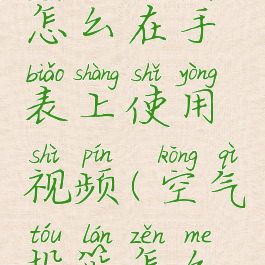 怎么在手
biǎo shàng shǐ yòng
表上使用
shì pín kōng qì
视频(空气
tóu lán zěn me
投篮怎么